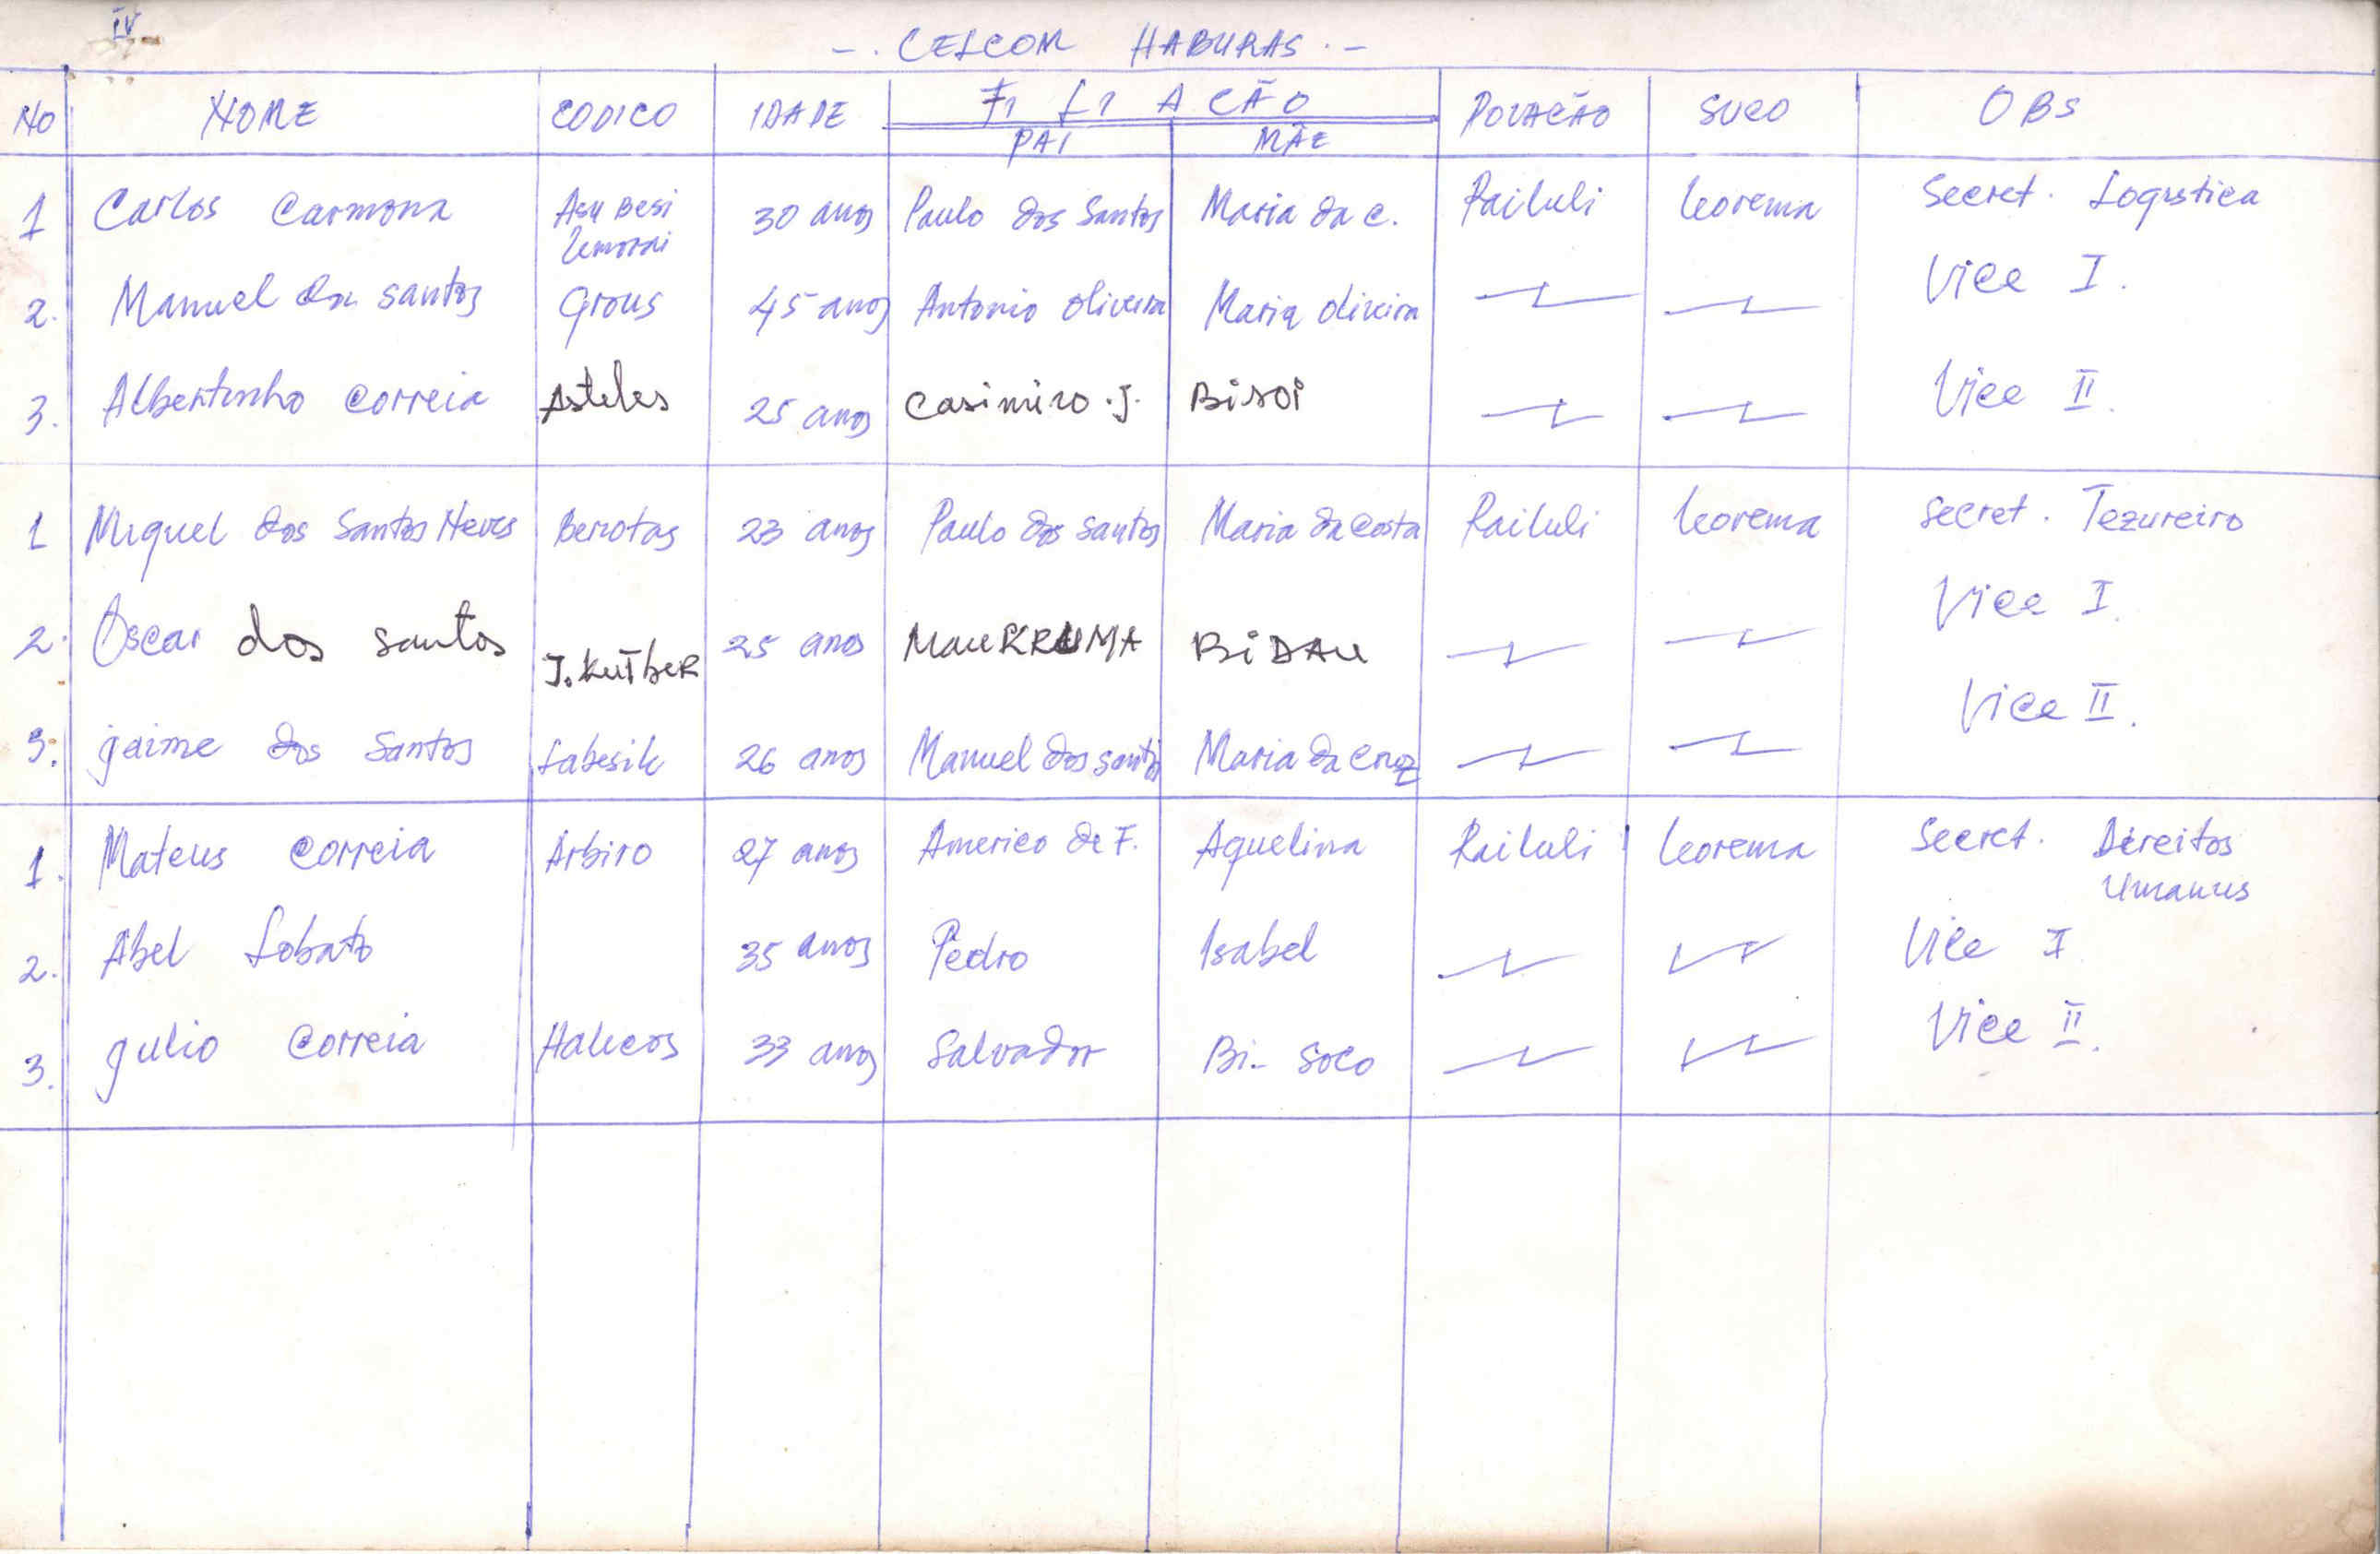 IV
-. CELCOM HABURAS .-
NO NOME CODICO IDADE FILIACÃO POVACÃO SUCO OBS
PAI MÃE
1 Carlos Carmona Asu Besi 30 anos Paulo dos Santos Maria da C. Railuli leorema Secret. Logistica
2. Manuel dos santos Grous 45 anos Antonio Oliveira Maria Oliveira Vice I.
3. Albertinho Correia Asteles 25 anos Casimiro .J. BiSOi Vice II.
1 Miguel dos Santos Neves Berotas 23 anos Paulo dos Santos Maria da Costa Railuli leorema Secret. Tezureiro
2. Oscar dos santos J. KutbeR 25 anos MauKRUMA BiDAU Vice I.
3. jaime dos Santos Labesik 26 anos Manuel dos santos Maria da Cruz Vice II.
1. Mateus Correia Arbiro 27 anos Americo de F. Aquelina Railuli leorema Secret. Direitos
Umanus
2. Abel Lobato 35 anos Pedro Isabel Vice I
3. julio Correia Halicos 33 anos Salvador Bi- Soco Vice II.